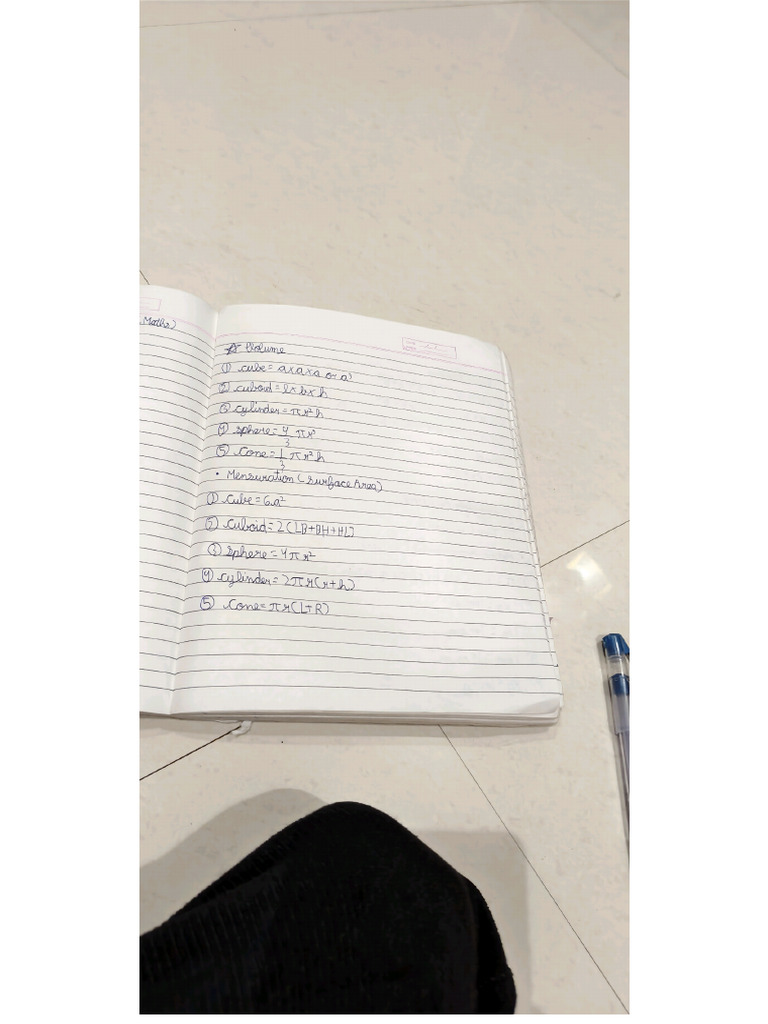 Maths)
Volume
① cube = a×a×a or a³
② cuboid = l×b×h
③ cylinder = πr²h
④ sphere = 4/3 πr³
⑤ Cone = 1/3 πr²h
• Mensuration (surface Area)
① cube = 6a²
② cuboid = 2(LB+BH+HL)
③ sphere = 4πr²
④ cylinder = 2πr(r+h)
⑤ Cone = πr(L+R)